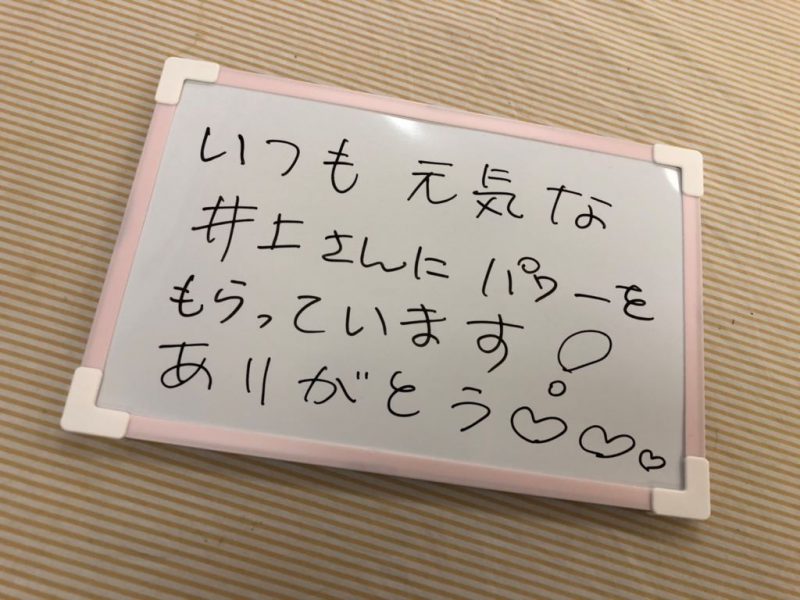 いつも 元気な
井上さんに パワーを
もらっています!
ありがとう♡♡♡